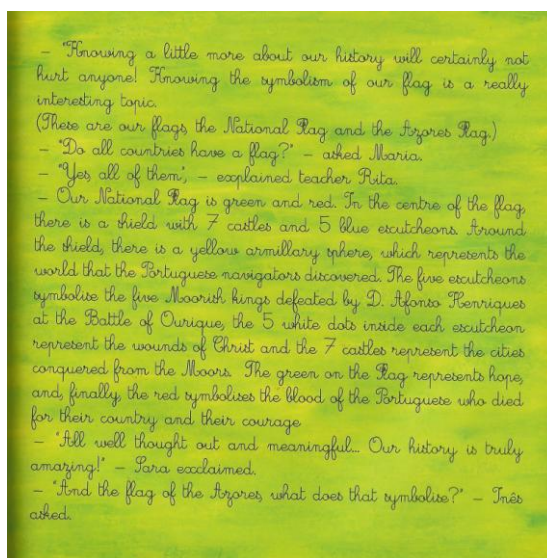 – "Knowing a little more about our history will certainly not
hurt anyone! Knowing the symbolism of our flag is a really
interesting topic.
(These are our flags, the National Flag and the Azores Flag.)
– "Do all countries have a flag?" – asked Maria.
– "Yes, all of them", – explained teacher Rita.
– Our National Flag is green and red. In the centre of the flag,
there is a shield with 7 castles and 5 blue escutcheons. Around
the shield, there is a yellow armillary sphere, which represents the
world that the Portuguese navigators discovered. The five escutcheons
symbolise the five Moorish kings defeated by D. Afonso Henriques
at the Battle of Ourique, the 5 white dots inside each escutcheon
represent the wounds of Christ and the 7 castles represent the cities
conquered from the Moors. The green on the Flag represents hope,
and, finally, the red symbolises the blood of the Portuguese who died
for their country and their courage
– "All well thought out and meaningful... Our history is truly
amazing!" – Sara exclaimed.
– "And the flag of the Azores, what does that symbolise?" – Inês
asked.